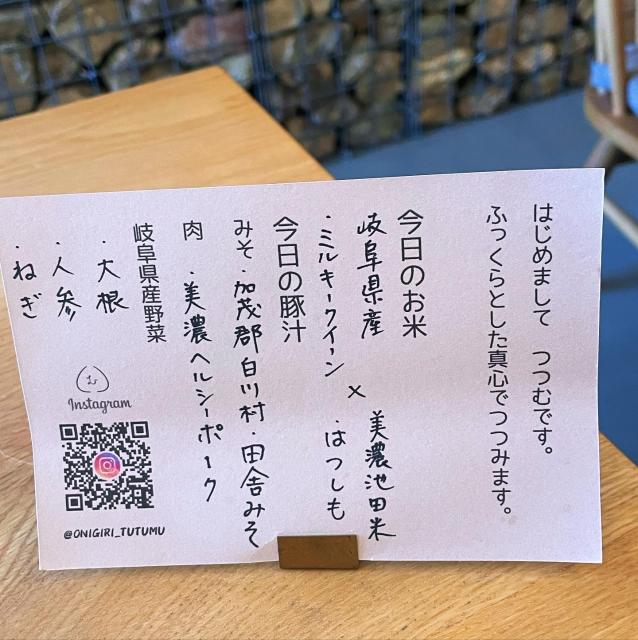 はじめまして　つつむです。
ふっくらとした真心でつつみます。
今日のお米
岐阜県産　美濃池田米
・ミルキークイーン × ・はつしも
今日の豚汁
みそ・加茂郡白川村・田舎みそ
肉・美濃ヘルシーポーク
岐阜県産野菜
・大根
・人参
・ねぎ
Instagram
@ONIGIRI_TUTUMU